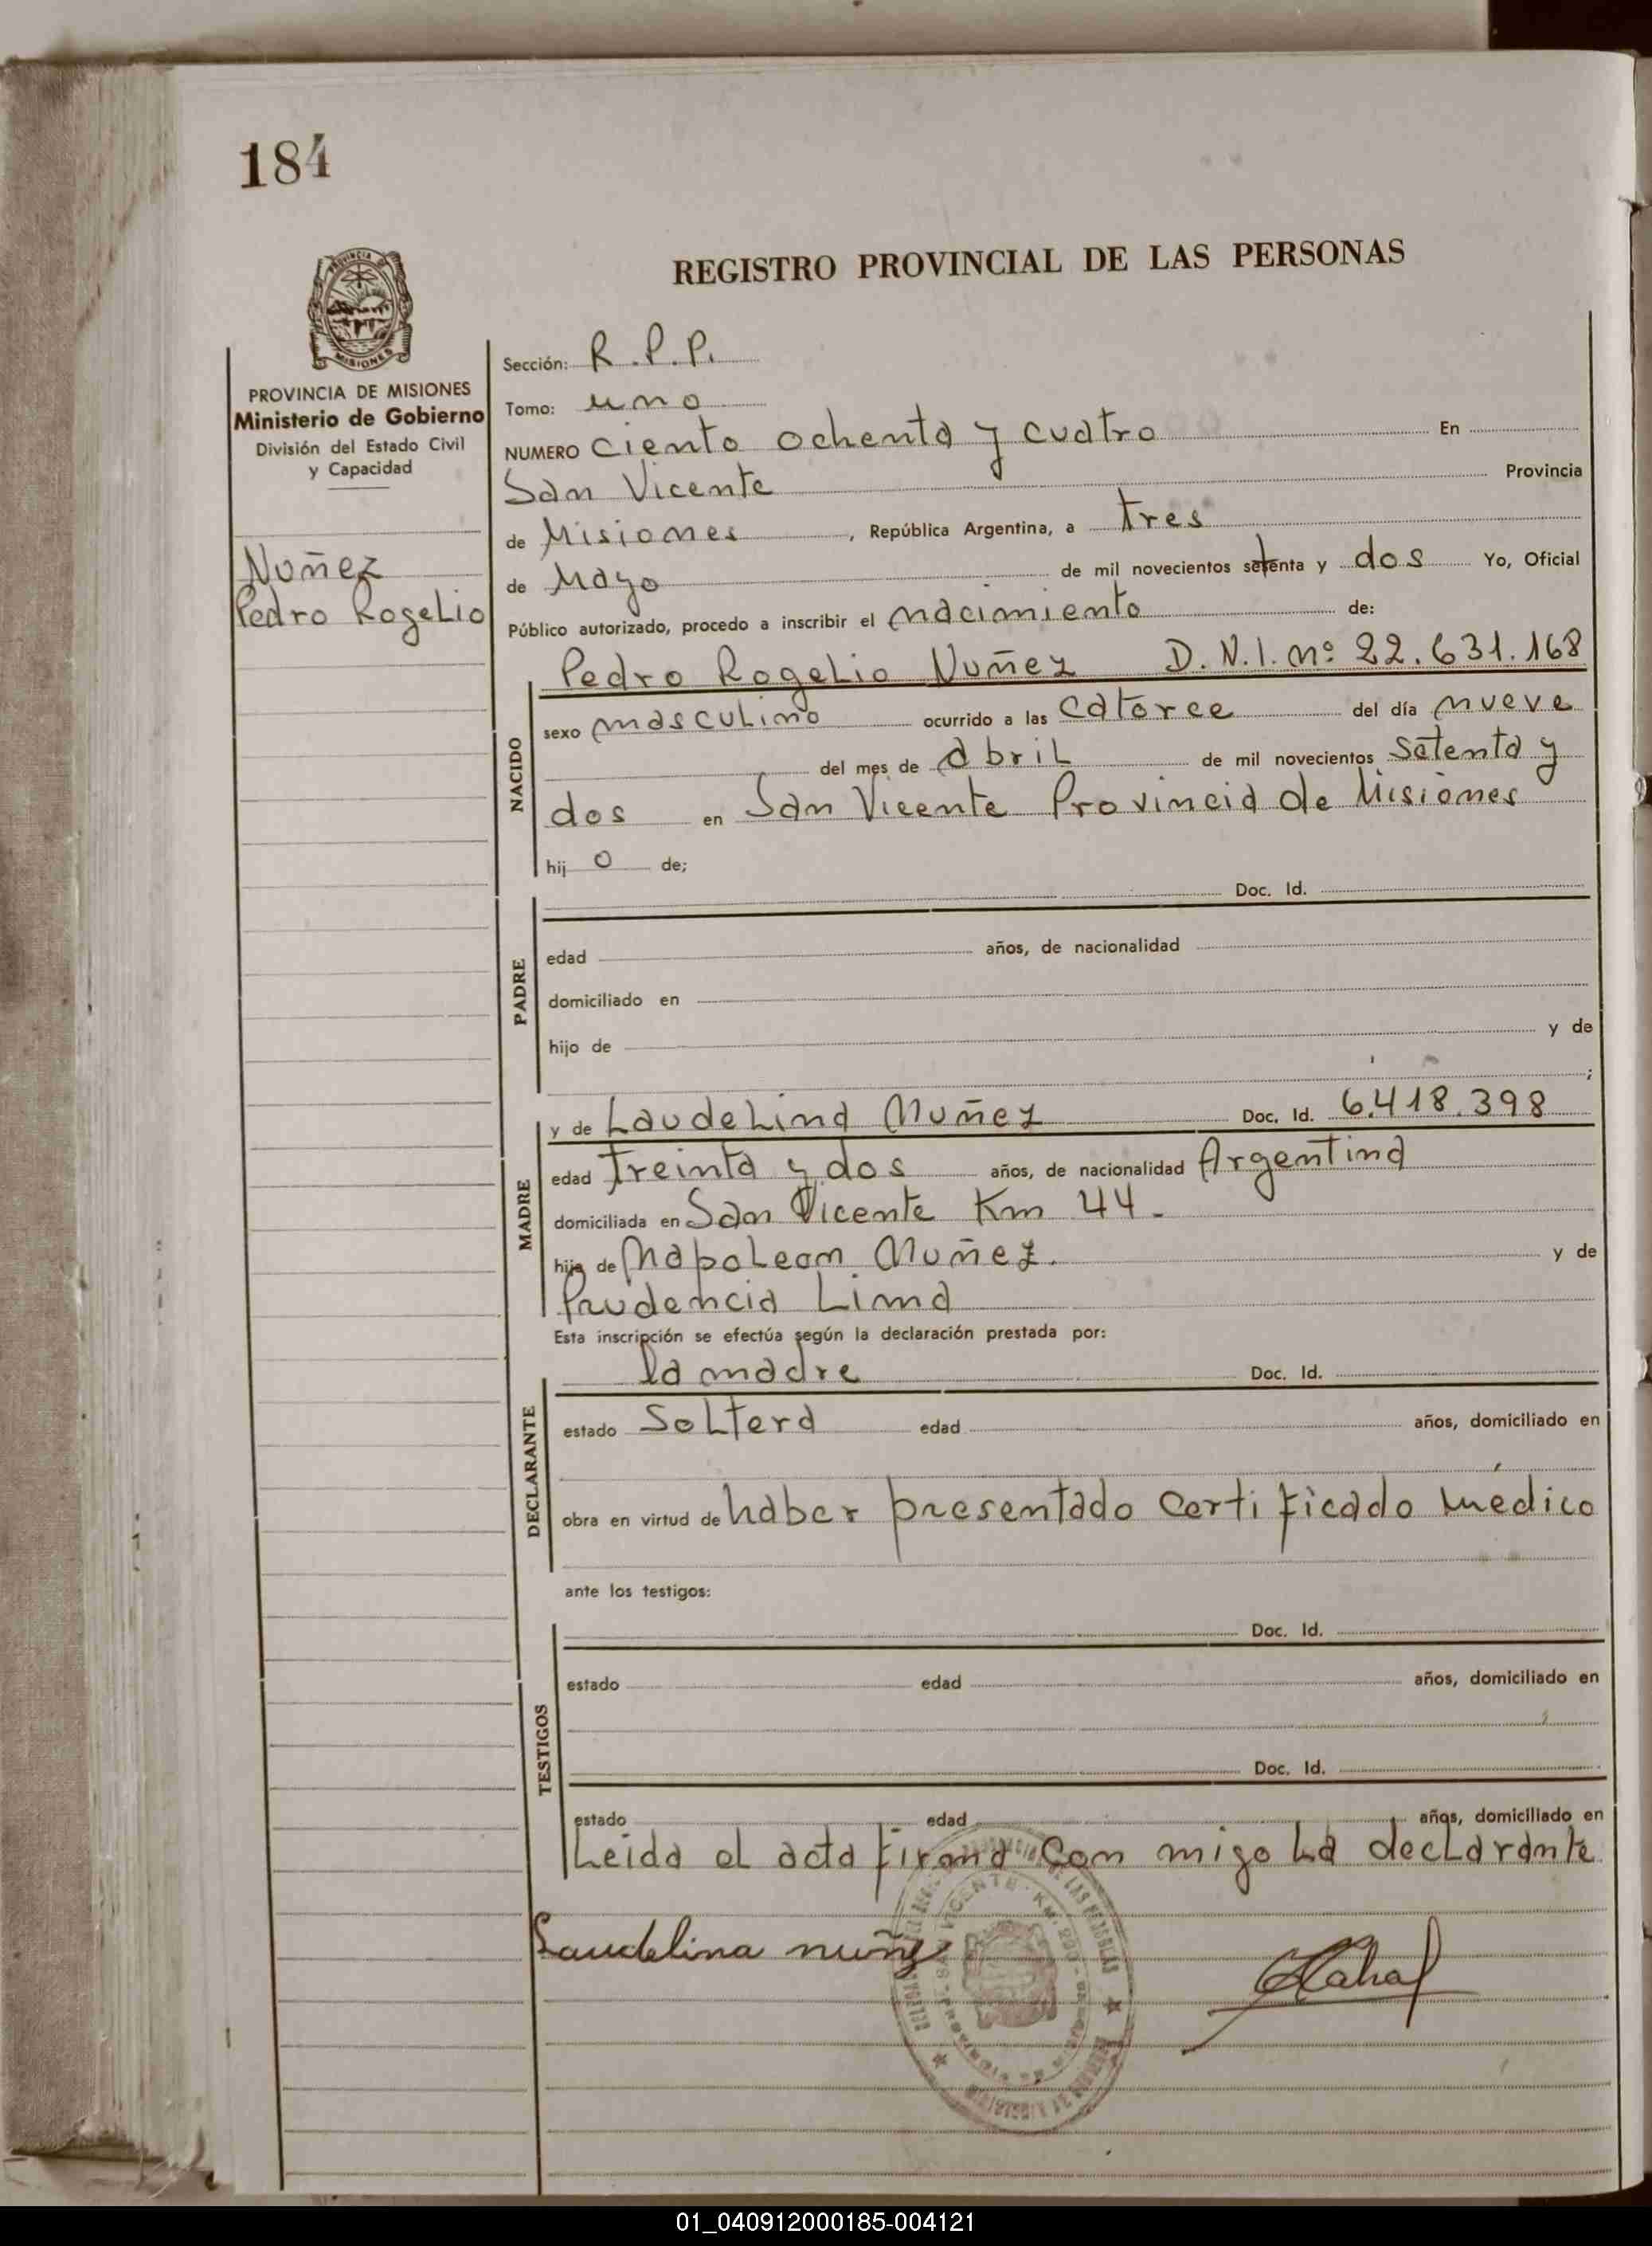 184
REGISTRO PROVINCIAL DE LAS PERSONAS
PROVINCIA DE
MISIONES
PROVINCIA DE MISIONES
Ministerio de Gobierno
División del Estado Civil
y Capacidad
Nuñez
Pedro Rogelio
Sección: R.P.P.
Tomo: uno
NUMERO ciento ochenta y cuatro En
San Vicente Provincia
de Misiones, República Argentina, a tres
de Mayo de mil novecientos setenta y dos Yo, Oficial
Público autorizado, procedo a inscribir el nacimiento de:
NACIDO
Pedro Rogelio Nuñez D.N.I. nº 22.631.168
sexo masculino ocurrido a las catorce del día nueve
del mes de abril de mil novecientos setenta y
dos en San Vicente Provincia de Misiones
hijo de;
PADRE
Doc. Id.
edad años, de nacionalidad
domiciliado en
hijo de y de
;
MADRE
y de Laudelina Nuñez Doc. Id. 6.418.398
edad treinta y dos años, de nacionalidad Argentina
domiciliada en San Vicente Km 44.
hija de Napoleon Nuñez. y de
Prudencia Lima
Esta inscripción se efectúa según la declaración prestada por:
DECLARANTE
la madre Doc. Id.
estado Soltera edad años, domiciliado en
obra en virtud de haber presentado certificado médico
ante los testigos:
TESTIGOS
Doc. Id.
estado edad años, domiciliado en
Doc. Id.
estado edad años, domiciliado en
Leida el acta firma con migo la declarante
Laudelina nuñez
01_040912000185-004121